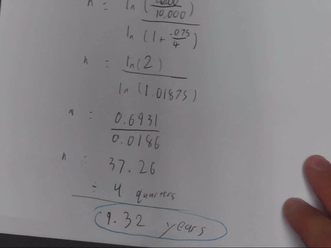 n = ln (20,000 / 10,000) / ln (1 + .075 / 4)
n = ln(2) / ln (1.01875)
n = 0.6931 / 0.0186
n = 37.26
÷ 4 quarters
9.32 years